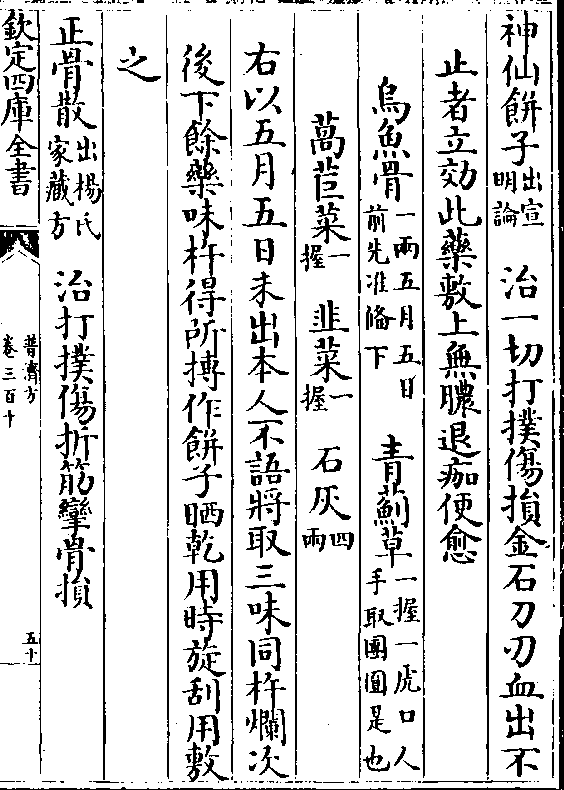 神仙餅子出宣明論　治一切打撲傷損金石刀刃血出不
止者立効此藥敷上無膿退痂便愈
烏魚骨一兩五月五日前先准備下　青薊草一握一虎口人手取團圓是也
萵苣菜一握　韭菜一握　石灰四兩
右以五月五日未出本人不語將取三味同杵爛次
後下餘藥味杵得所摶作餅子晒乾用時旋刮用敷
之
正骨散出楊氏家藏方　治打撲傷折筋攣骨損
欽定四庫全書
普濟方
卷三百十
五十